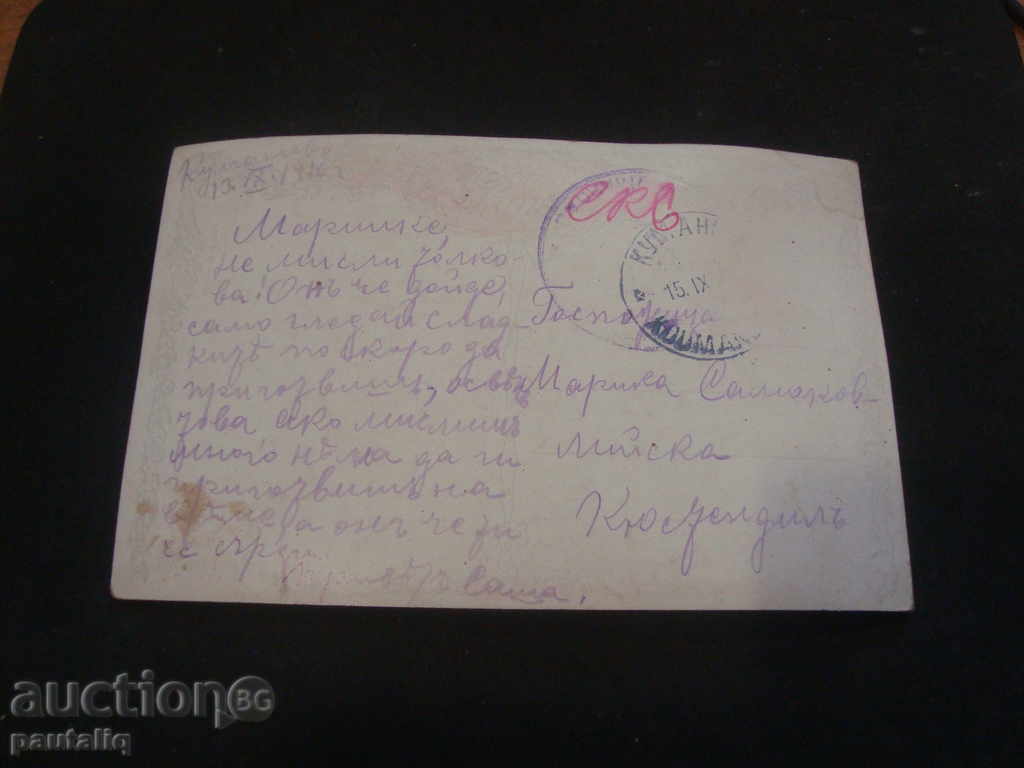 Куманово
13.IX.1916 г
Маришке,
не мисли толко-
ва! Онъ че дойде,
само гледай слад-
китѣ по скоро да
приготвишъ, освѣнъ
това ако мислишъ
много нѣма да ги
приготвишъ на
време, а онъ че ти
се сърди
Саша.
СКС
КУМАН
15.IX
KOUMAN
Госпожица
Марика Самоков-
лийска
Кюстендилъ
auction BG
pautaliq